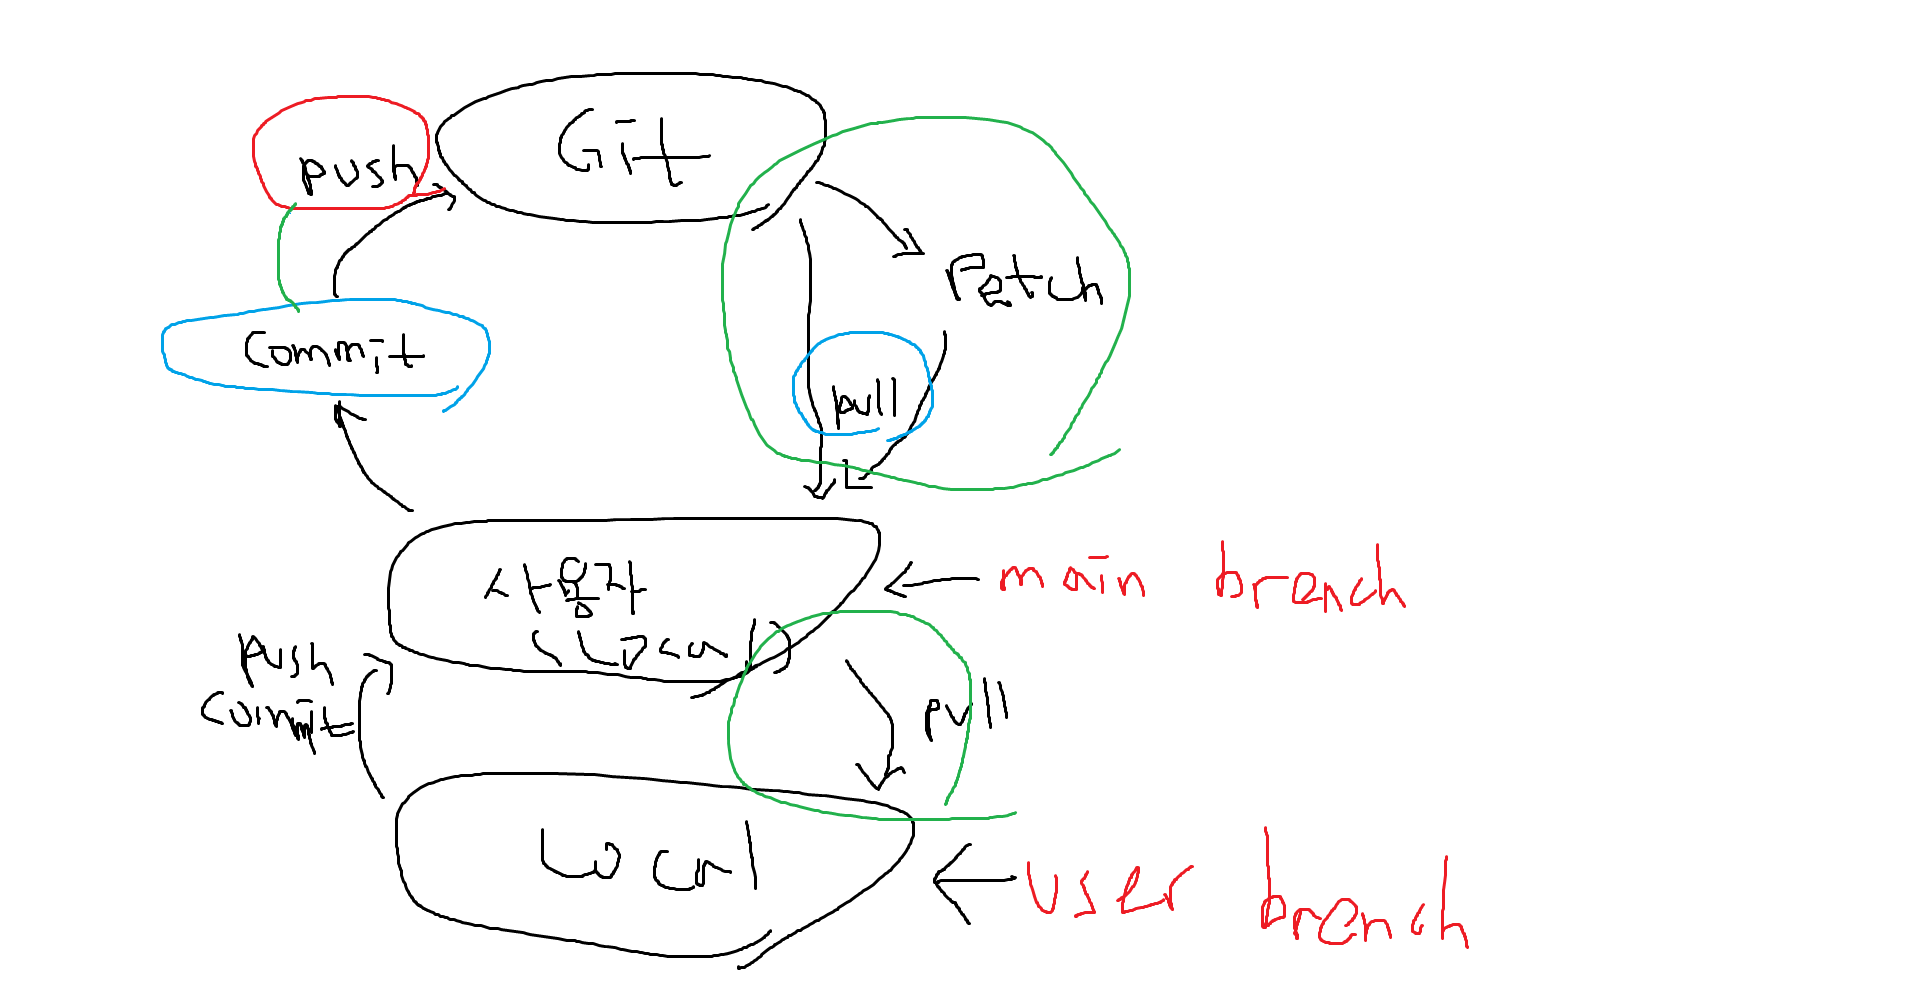 Git
push
Fetch
commit
pull
사용자
(Local)
main branch
push
commit
pull
Local
user branch